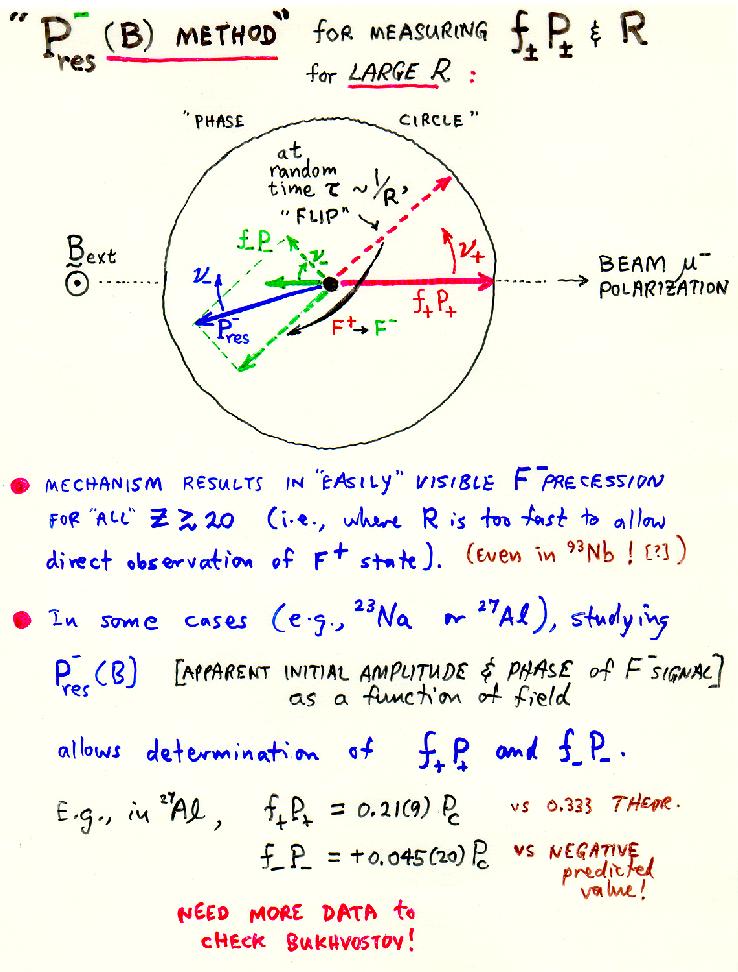 "P⁻res (B) METHOD" for MEASURING f±P± & R
for LARGE R :
"PHASE CIRCLE"
at
random
time τ ~ 1/R,
"FLIP"
B ext
f_P_
ν_
ν₊
ν_
P⁻res
f₊P₊
F⁺→F⁻
BEAM μ⁻
POLARIZATION
• MECHANISM RESULTS IN "EASILY" VISIBLE F⁻ PRECESSION
FOR "ALL" Z ≳ 20 (i.e., where R is too fast to allow
direct observation of F⁺ state). (Even in ⁹³Nb ! [?])
• In some cases (e.g., ²³Na or ²⁷Al), studying
P⁻res (B) [APPARENT INITIAL AMPLITUDE & PHASE of F⁻ SIGNAL]
as a function of field
allows determination of f₊P₊ and f_P_.
E.g., in ²⁷Al, f₊P₊ = 0.21(9) Pc vs 0.333 THEOR.
f_P_ = +0.045(20) Pc vs NEGATIVE
predicted
value!
NEED MORE DATA to
CHECK BUKHVOSTOV!